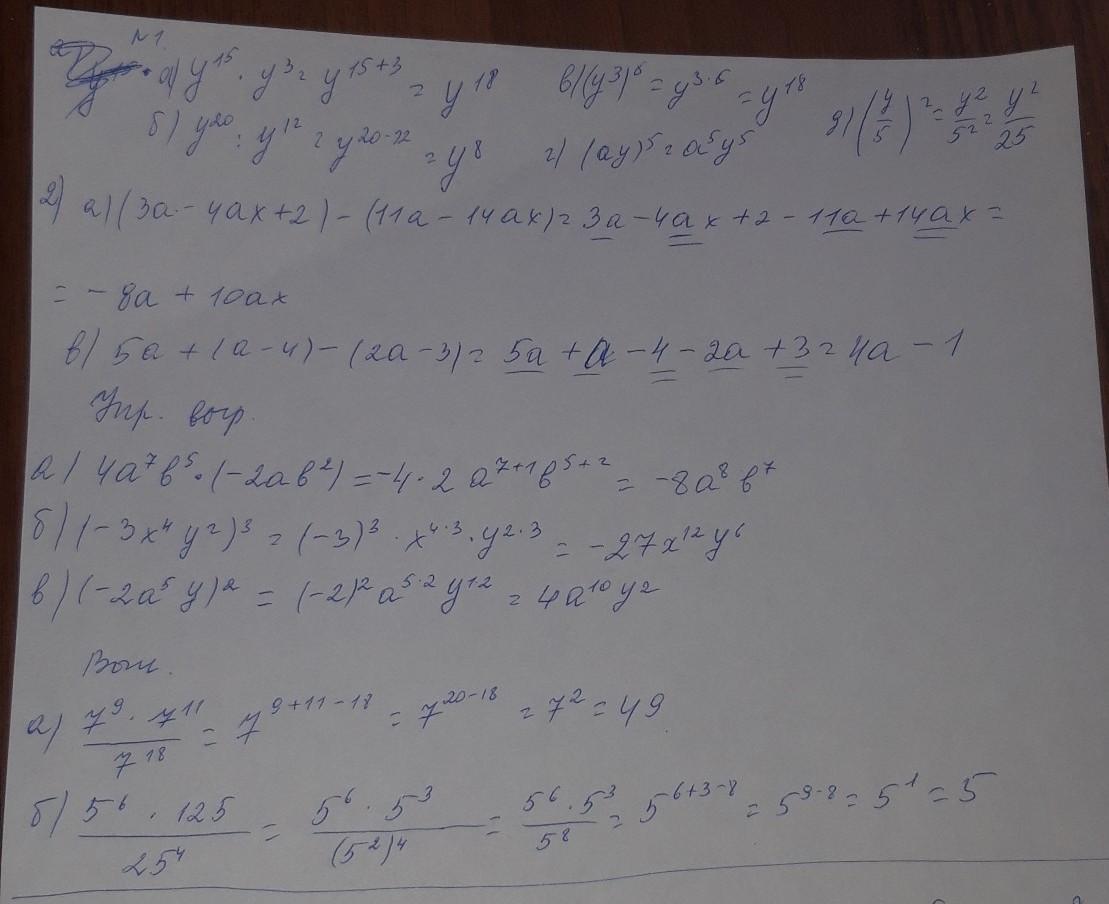 №1.
а) y¹⁵ · y³ = y¹⁵⁺³ = y¹⁸ в) (y³)⁶ = y³·⁶ = y¹⁸ д) (y/5)² = y²/5² = y²/25
б) y²⁰ : y¹² = y²⁰⁻¹² = y⁸ г) (ay)⁵ = a⁵y⁵
2) а) (3a - 4ax + 2) - (11a - 14ax) = 3a - 4ax + 2 - 11a + 14ax =
= - 8a + 10ax
в) 5a + (a - 4) - (2a - 3) = 5a + a - 4 - 2a + 3 = 4a - 1
Упр. выр.
а) 4a⁷b⁵ · (-2ab²) = -4 · 2 a⁷⁺¹b⁵⁺² = -8a⁸b⁷
б) (-3x⁴y²)³ = (-3)³ · x⁴·³ · y²·³ = -27x¹²y⁶
в) (-2a⁵y)² = (-2)²a⁵·²y¹² = 4a¹⁰y²
Выч.
а) 7⁹ · 7¹¹ / 7¹⁸ = 7⁹⁺¹¹⁻¹⁸ = 7²⁰⁻¹⁸ = 7² = 49
б) 5⁶ · 125 / 25⁴ = 5⁶ · 5³ / (5²)⁴ = 5⁶ · 5³ / 5⁸ = 5⁶⁺³⁻⁸ = 5⁹⁻⁸ = 5¹ = 5